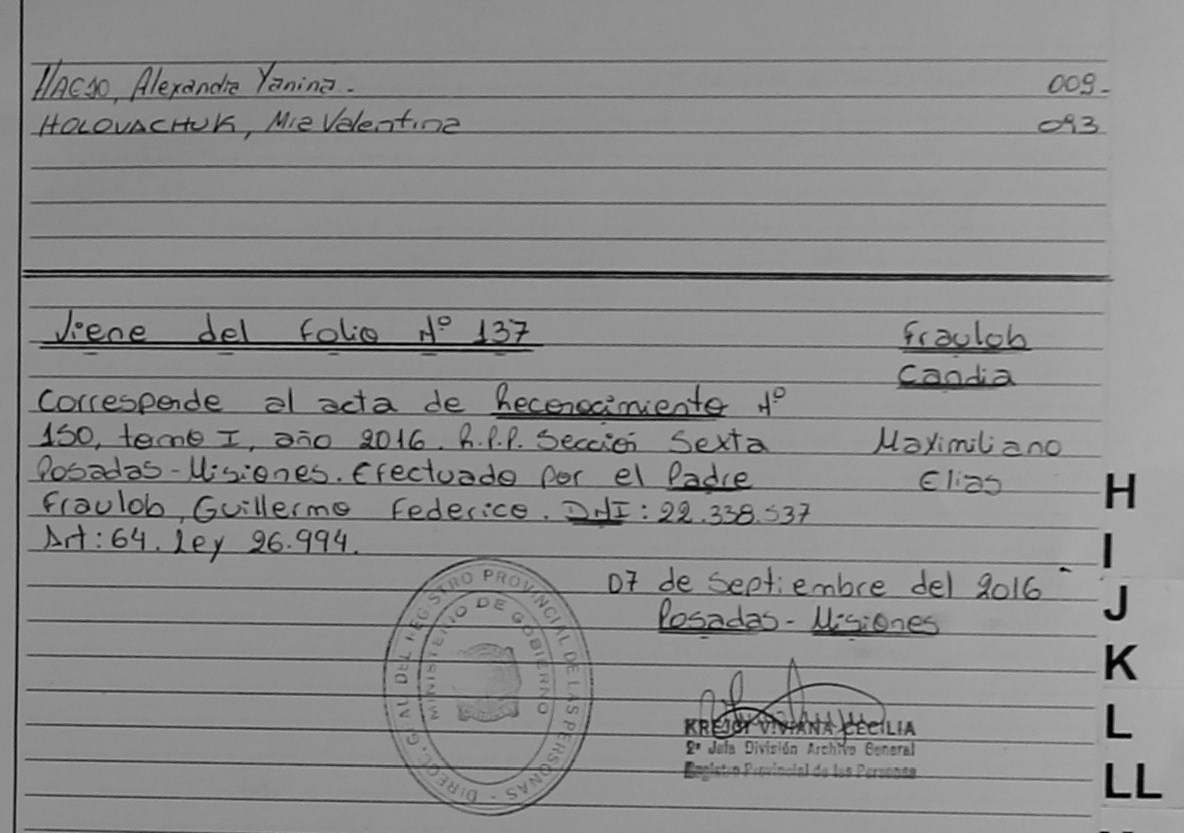 Alexandra Yanina. 009-
HOLOVACHUK, Mia Valentina 093
Viene del folio Nº 137
Fraulob
Candia
Corresponde al acta de Reconocimiento Nº
150, tomo I, año 2016. R.P.P. Sección Sexta
Maximiliano
Posadas-Misiones. Efectuado por el Padre
Elias
Fraulob, Guillermo Federico. DNI: 22.338.537
Art: 64. Ley 26.994.
07 de Septiembre del 2016
Posadas - Misiones
DIREC. GRAL DEL REGISTRO PROVINCIAL DE LAS PERSONAS -
MINISTERIO DE GOBIERNO
KREJCI VIVIANA CECILIA
2º Jefa División Archivo General
Registro Provincial de las Personas
H
I
J
K
L
LL